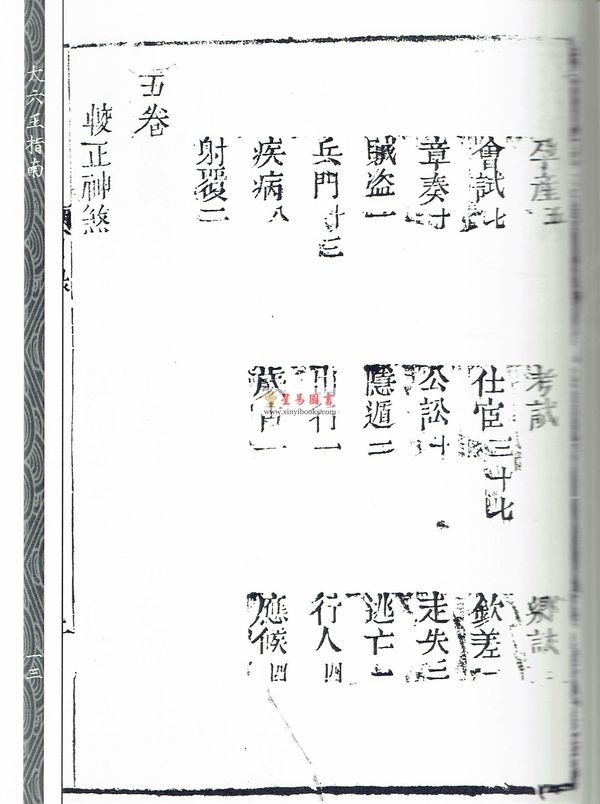 孕產五 考試 鄉試
會試七 仕宦三十七 欽差一
章奏十 公訟十 走失三
賊盜一 隱遁二 逃亡一
兵門十三 行一 行人四
疾病八 一 應候四
射覆二
五卷
較正神煞
大六壬指南
一三
星易圖書
www.xinyibooks.com